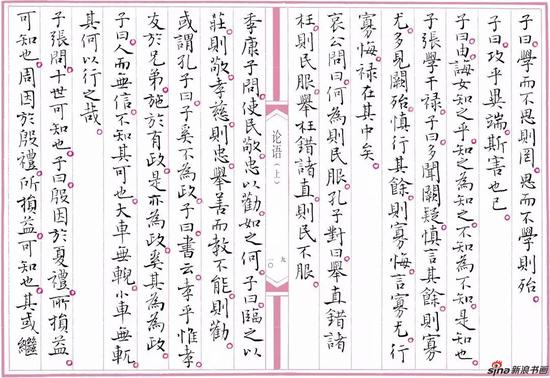 子曰學而不思則罔思而不學則殆
子曰攻乎異端斯害也已
子曰由誨女知之乎知之為知之不知為不知是知也
子張學干禄子曰多聞闕疑慎言其餘則寡
尤多見闕殆慎行其餘則寡悔言寡尤行
寡悔禄在其中矣
哀公問曰何為則民服孔子對曰舉直錯諸
枉則民服舉枉錯諸直則民不服
论语(上)
九
一〇
季康子問使民敬忠以勸如之何子曰臨之以
莊則敬孝慈則忠舉善而教不能則勸
或謂孔子曰子奚不為政子曰書云孝乎惟孝
友於兄弟施於有政是亦為政奚其為為政
子曰人而無信不知其可也大車無輗小車無軏
其何以行之哉
子張問十世可知也子曰殷因於夏禮所損益
可知也周因於殷禮所損益可知也其或繼
sina新浪书画